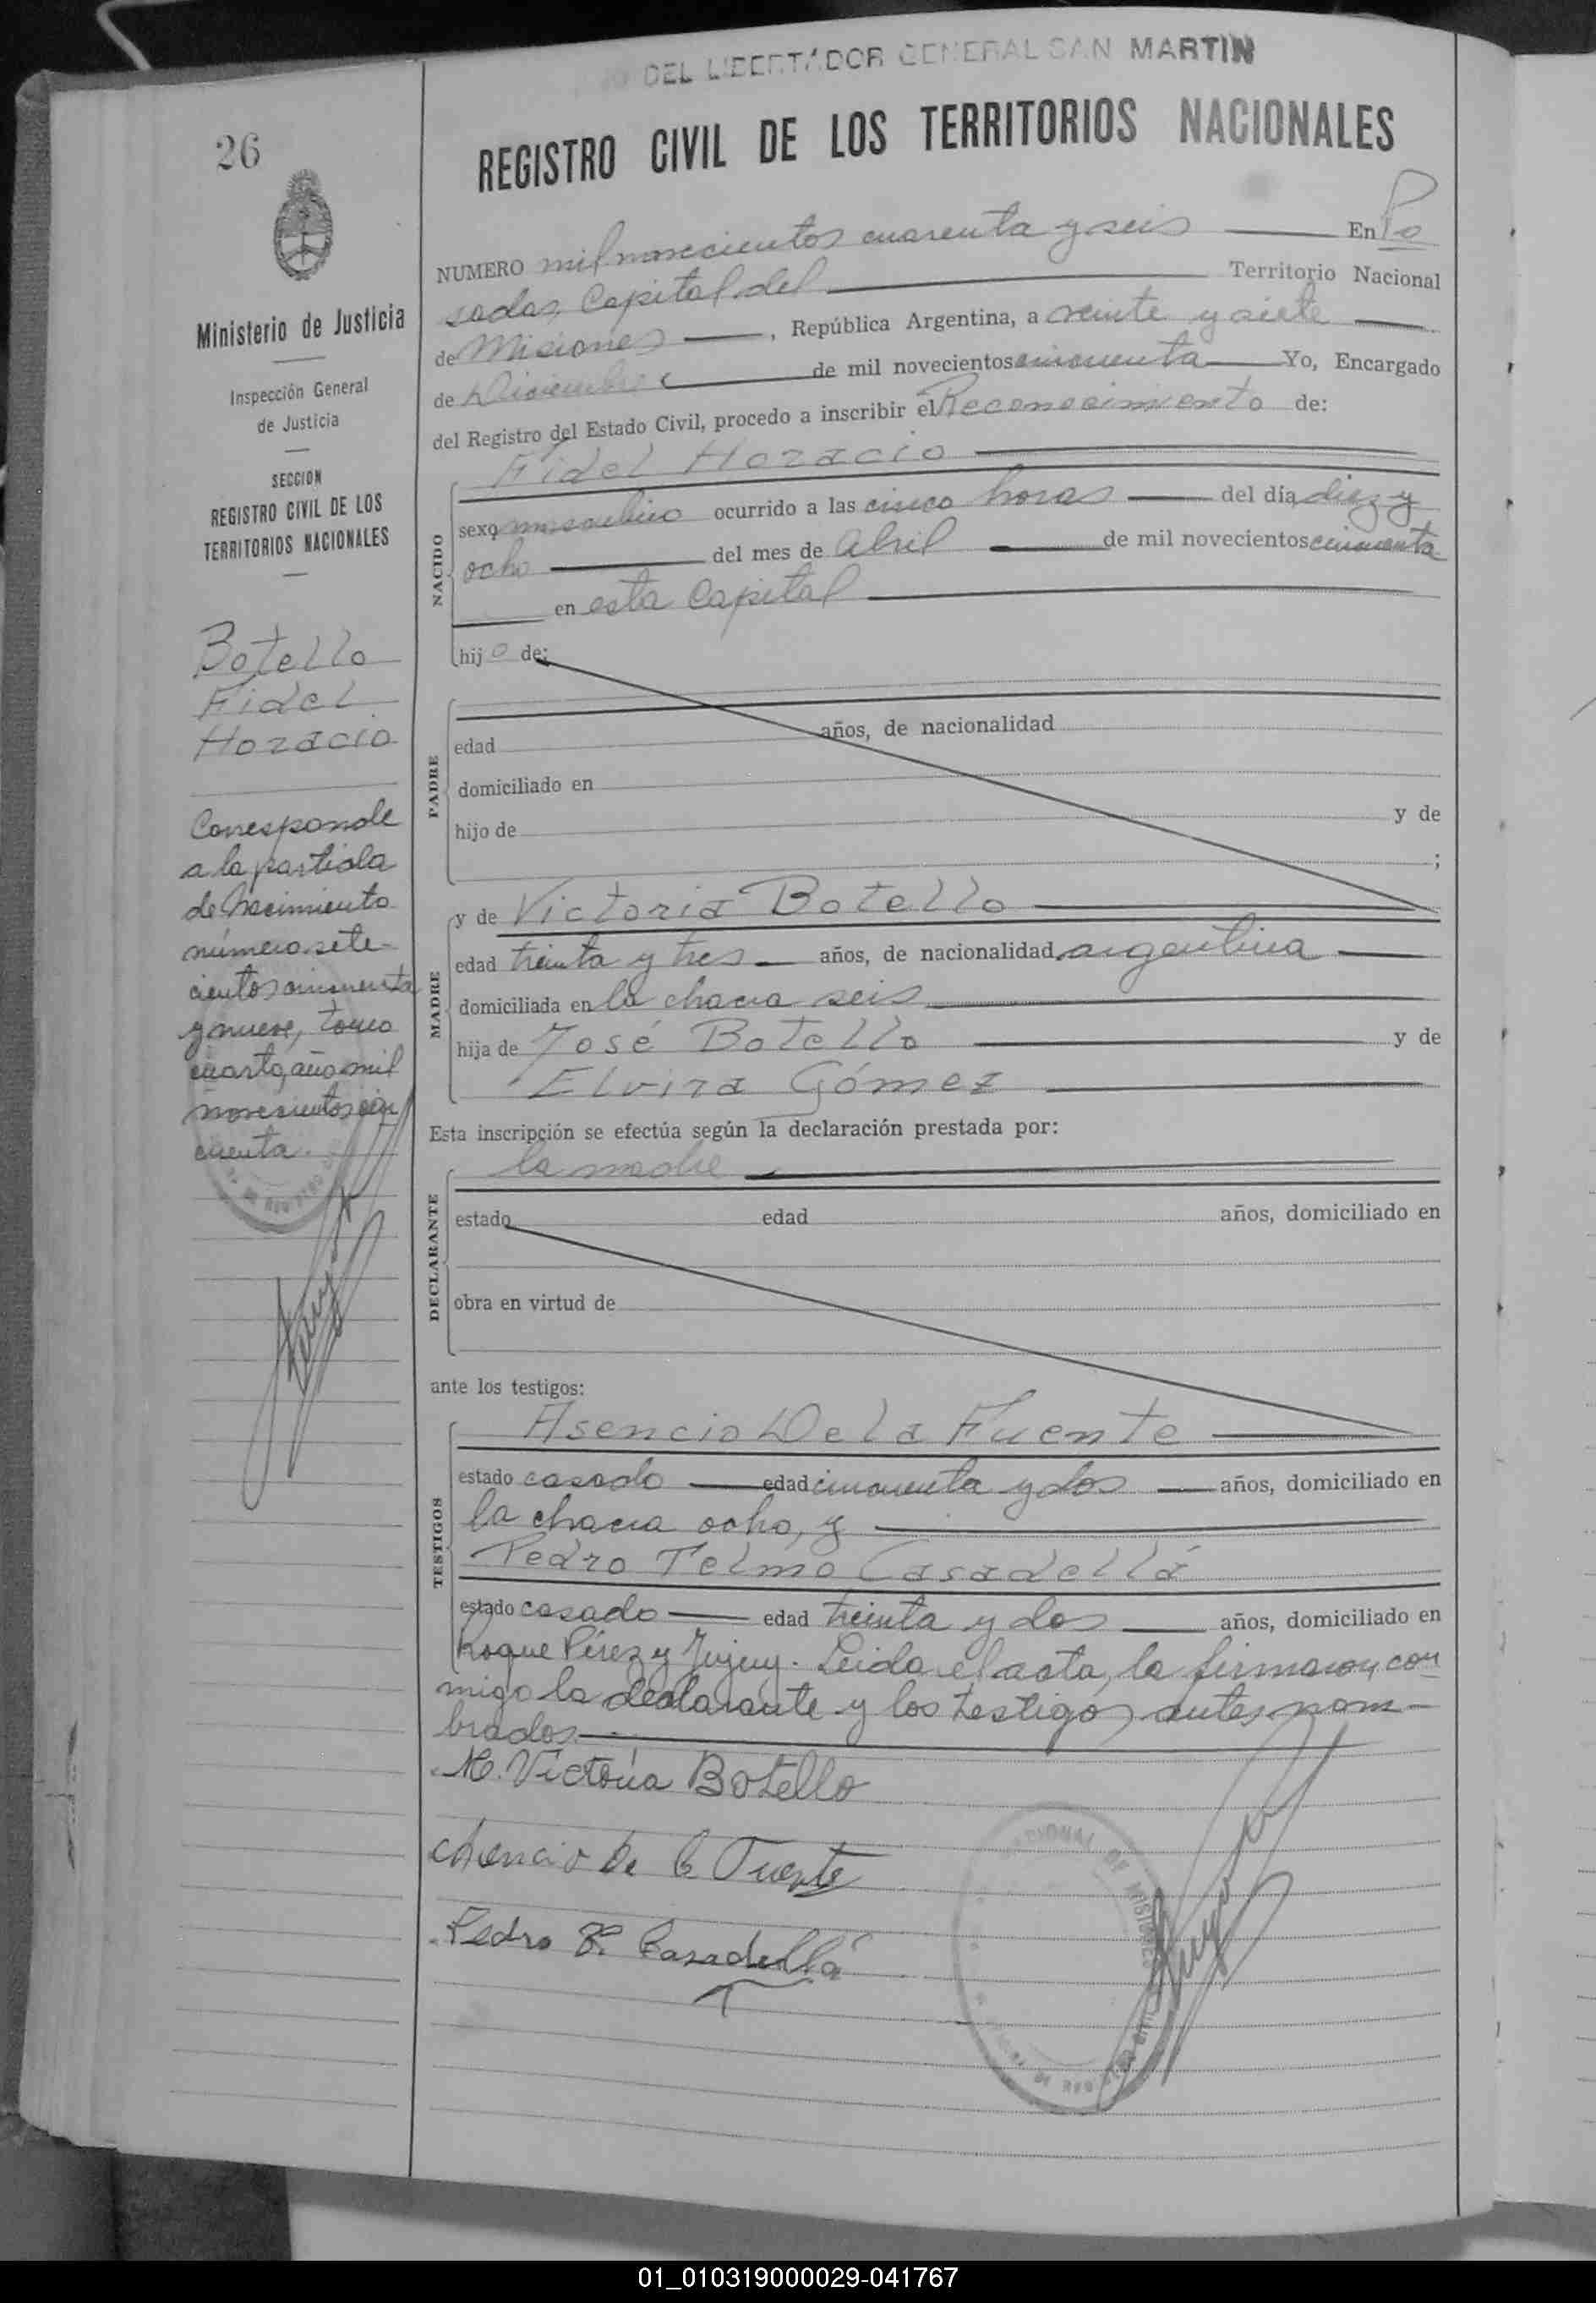 DEL LIBERTADOR GENERAL SAN MARTIN
REGISTRO CIVIL DE LOS TERRITORIOS NACIONALES
26
Ministerio de Justicia
Inspección General
de Justicia
SECCION
REGISTRO CIVIL DE LOS
TERRITORIOS NACIONALES
Botello
Fidel
Horacio
Corresponde
a la partida
de Nacimiento
número sete-
cientos cincuenta
y nueve, tomo
cuarto, año mil
novecientos cin
cuenta.
NUMERO mil novecientos cuarenta y seis En Po
sadas, Capital del Territorio Nacional
de Misiones, República Argentina, a veinte y siete
de Diciembre de mil novecientos cincuenta Yo, Encargado
del Registro del Estado Civil, procedo a inscribir el Reconocimiento de:
Fidel Horacio
NACIDO
sexo masculino ocurrido a las cinco horas del día diez y
ocho del mes de Abril de mil novecientos cincuenta
en esta Capital
hijo de:
PADRE
edad años, de nacionalidad
domiciliado en
hijo de y de
;
MADRE
y de Victoria Botello
edad treinta y tres años, de nacionalidad argentina
domiciliada en la chacra seis
hija de José Botello y de
Elvira Gómez
Esta inscripción se efectúa según la declaración prestada por:
la madre
DECLARANTE
estado edad años, domiciliado en
obra en virtud de
ante los testigos:
TESTIGOS
Asencio De la Fuente
estado casado edad cincuenta y dos años, domiciliado en
la chacra ocho, y
Pedro Telmo Casadellá
estado casado edad treinta y dos años, domiciliado en
Roque Pérez y Jujuy. Leida el acta, la firmaron con
migo la declarante y los testigos antes nom-
brados.
M. Victoria Botello
Asencio De la Fuente
Pedro T. Casadellá
01_010319000029-041767